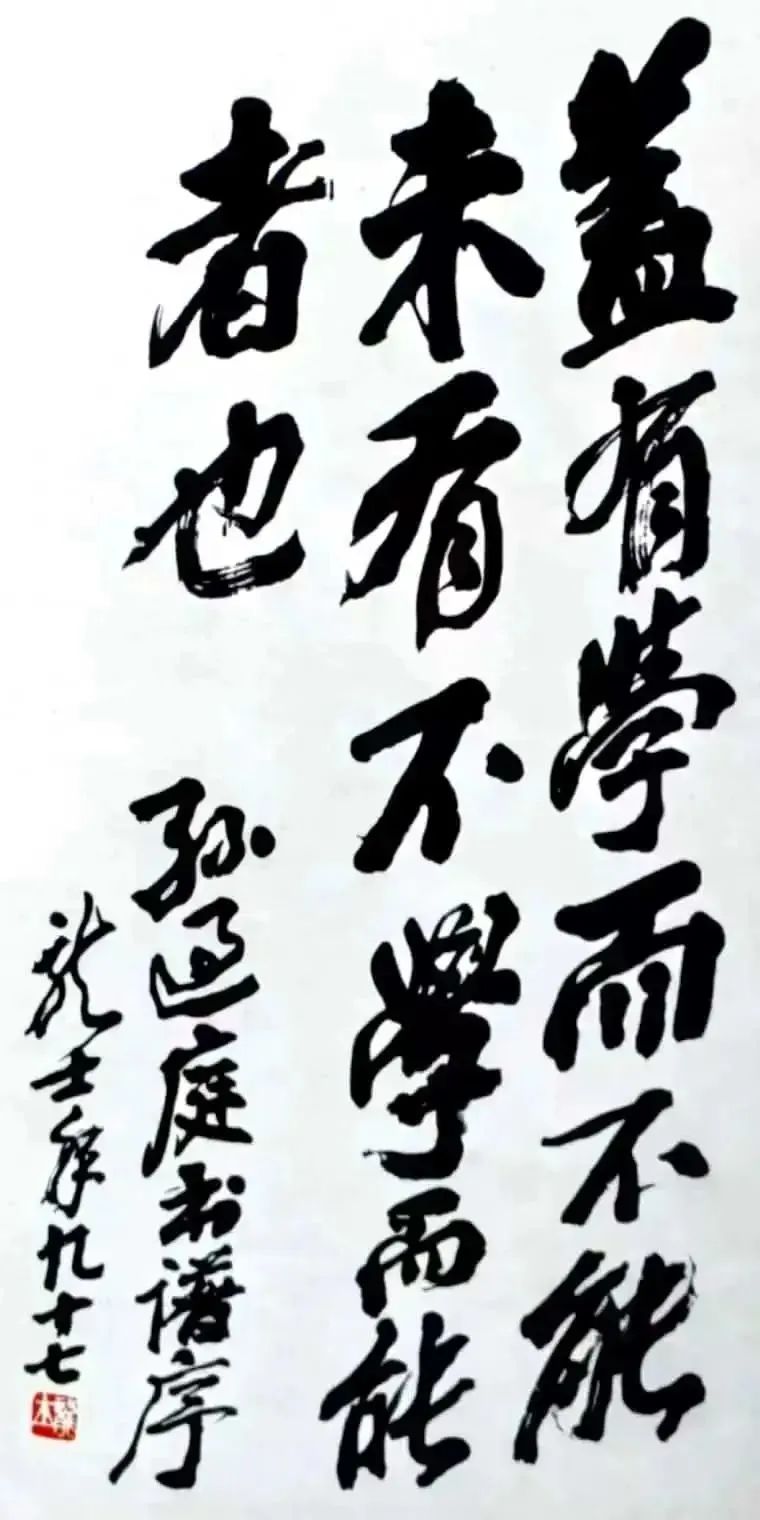 蓋有學而不能
未有不學而能
者也
孫過庭书譜序
龍士年九十七